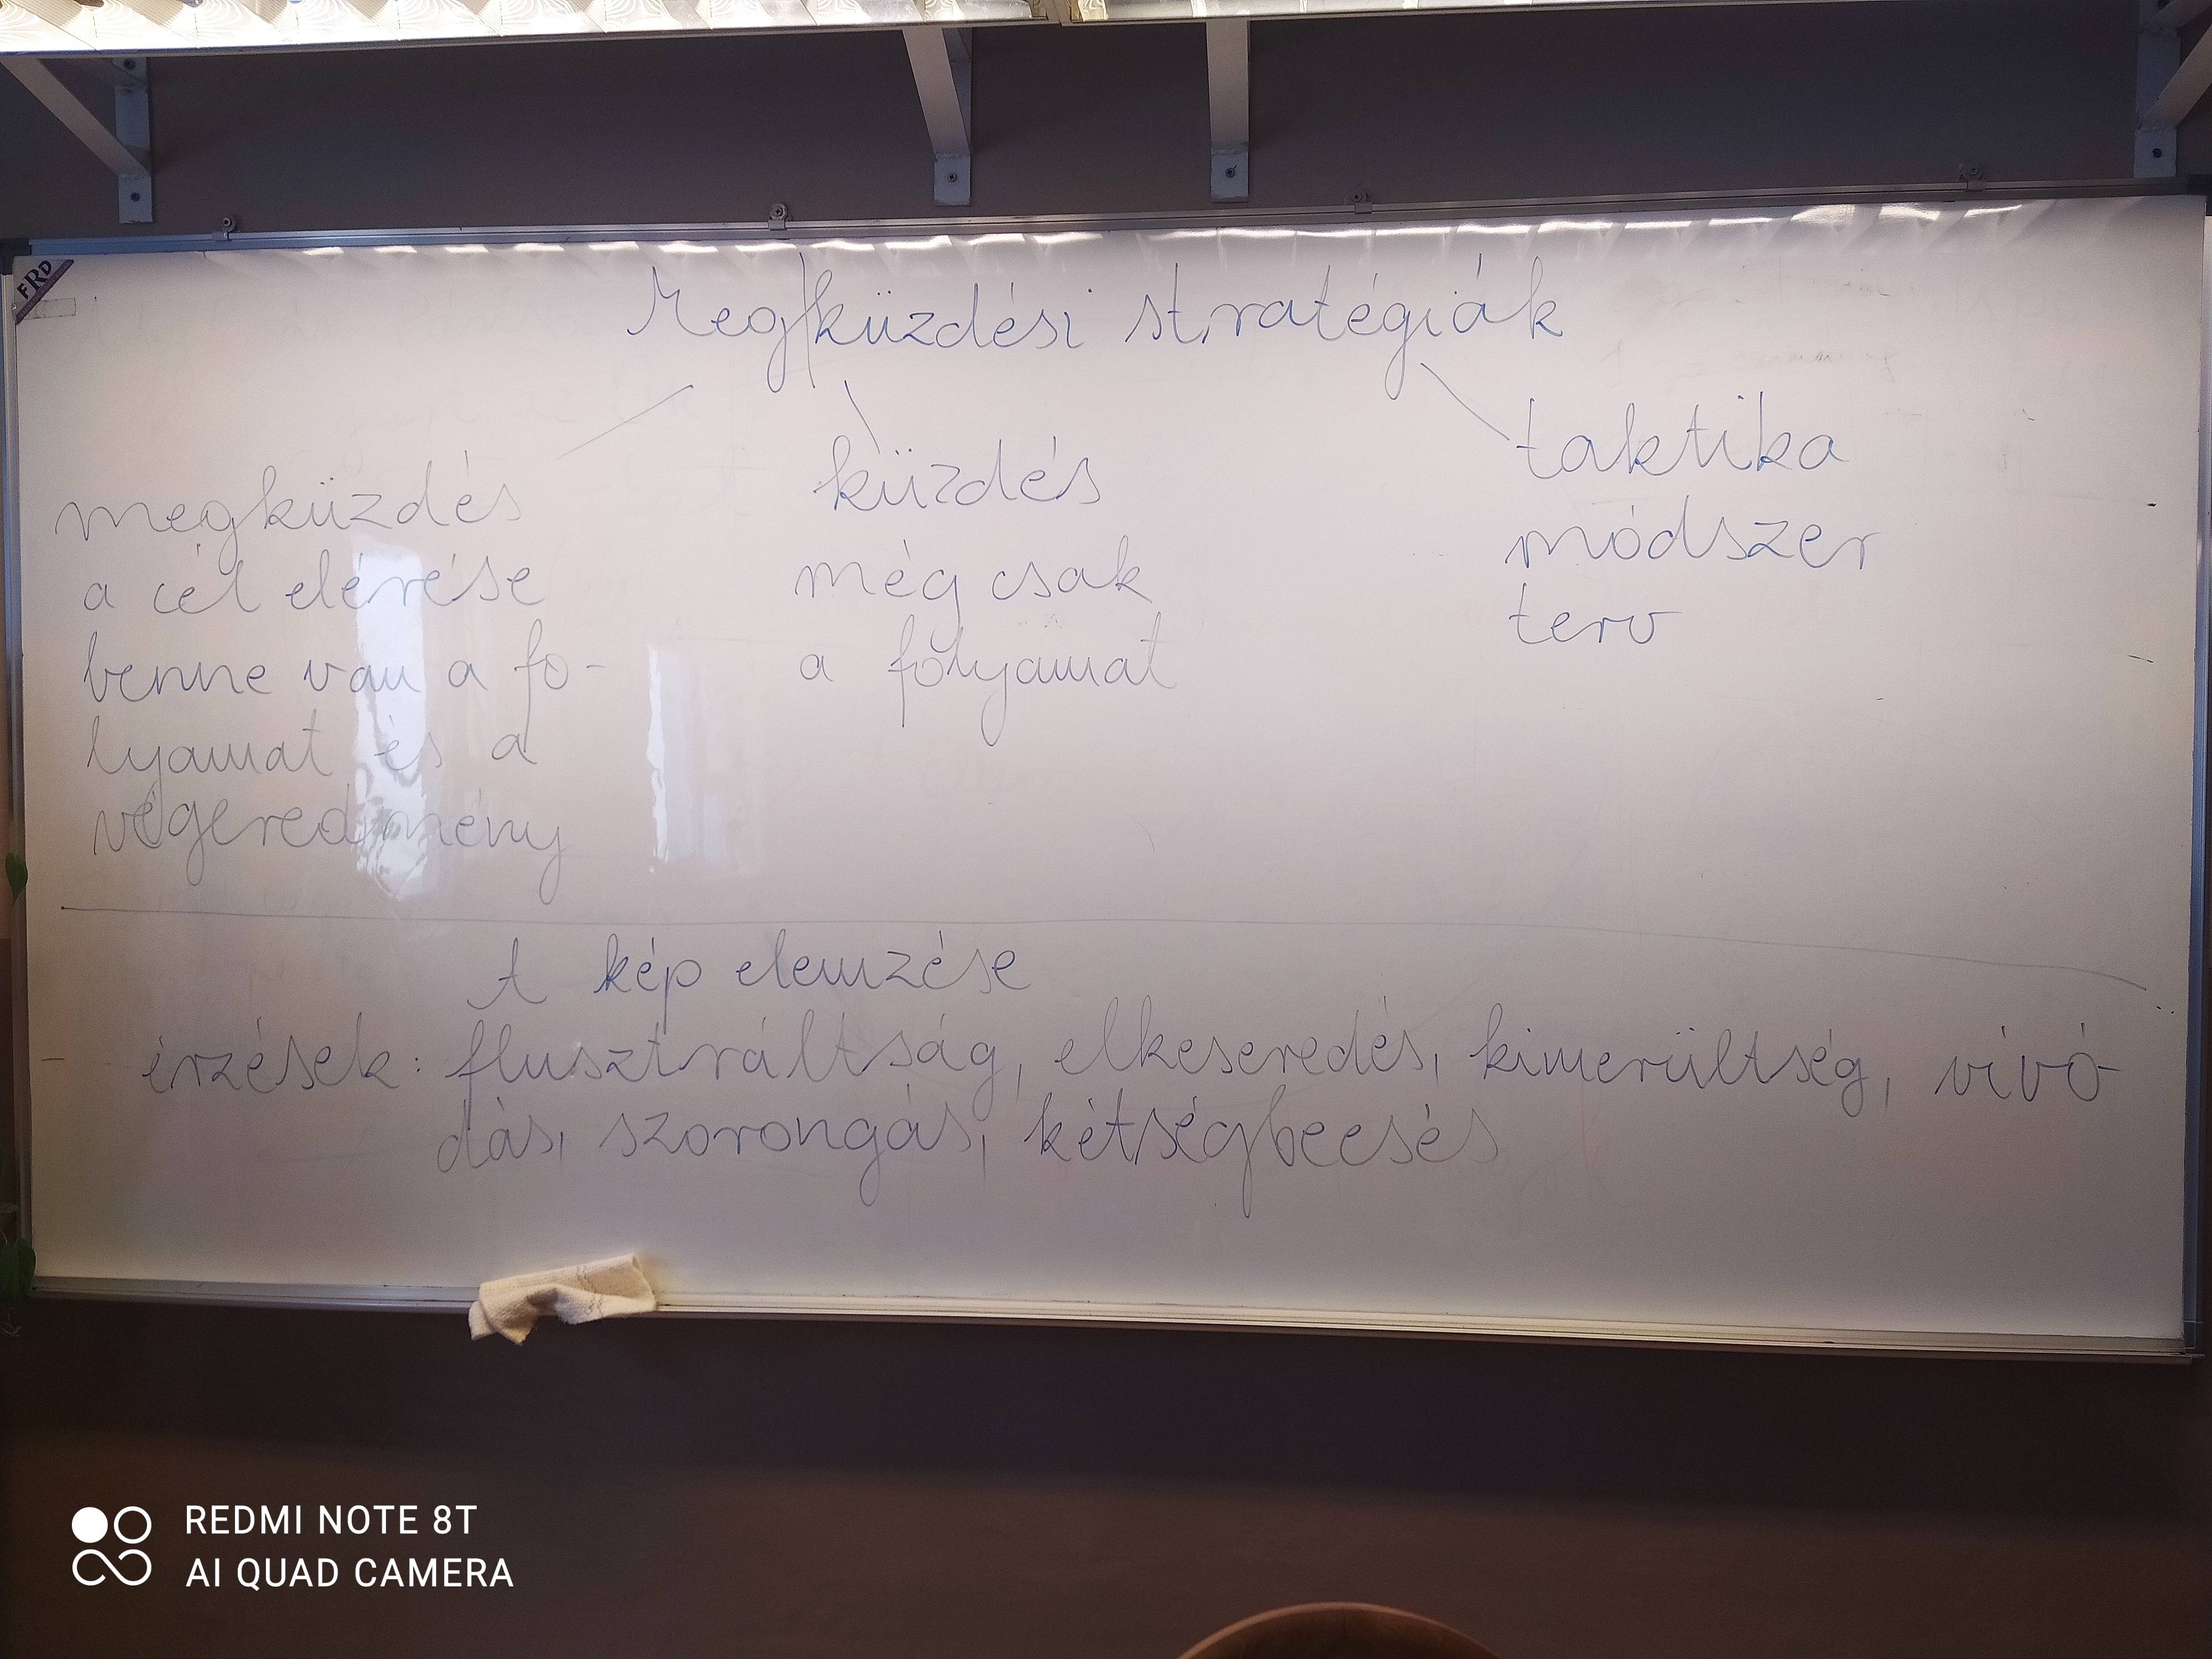 FRD
Meg|küzdési stratégiák
megküzdés
a cél elérése
benne van a fo-
lyamat és a
végeredmény
küzdés
még csak
a folyamat
taktika
módszer
terv
A kép elemzése
érzések: flusztráltság, elkeseredés, kimerültség, vívó-
dás, szorongás, kétségbeesés
REDMI NOTE 8T
AI QUAD CAMERA